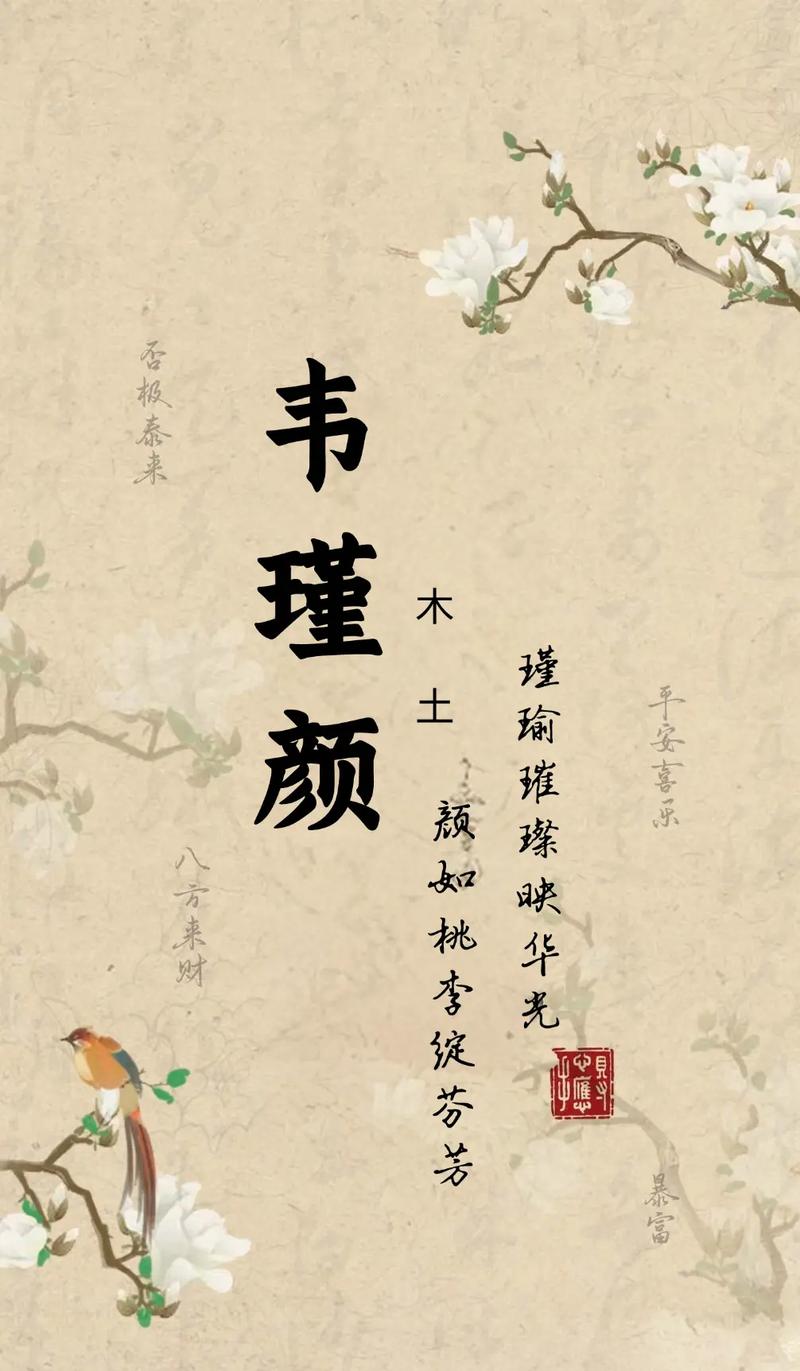 韦瑾颜
木土
瑾瑜璀璨映华光
颜如桃李绽芬芳
否极泰来
平安喜乐
八方来财
暴富